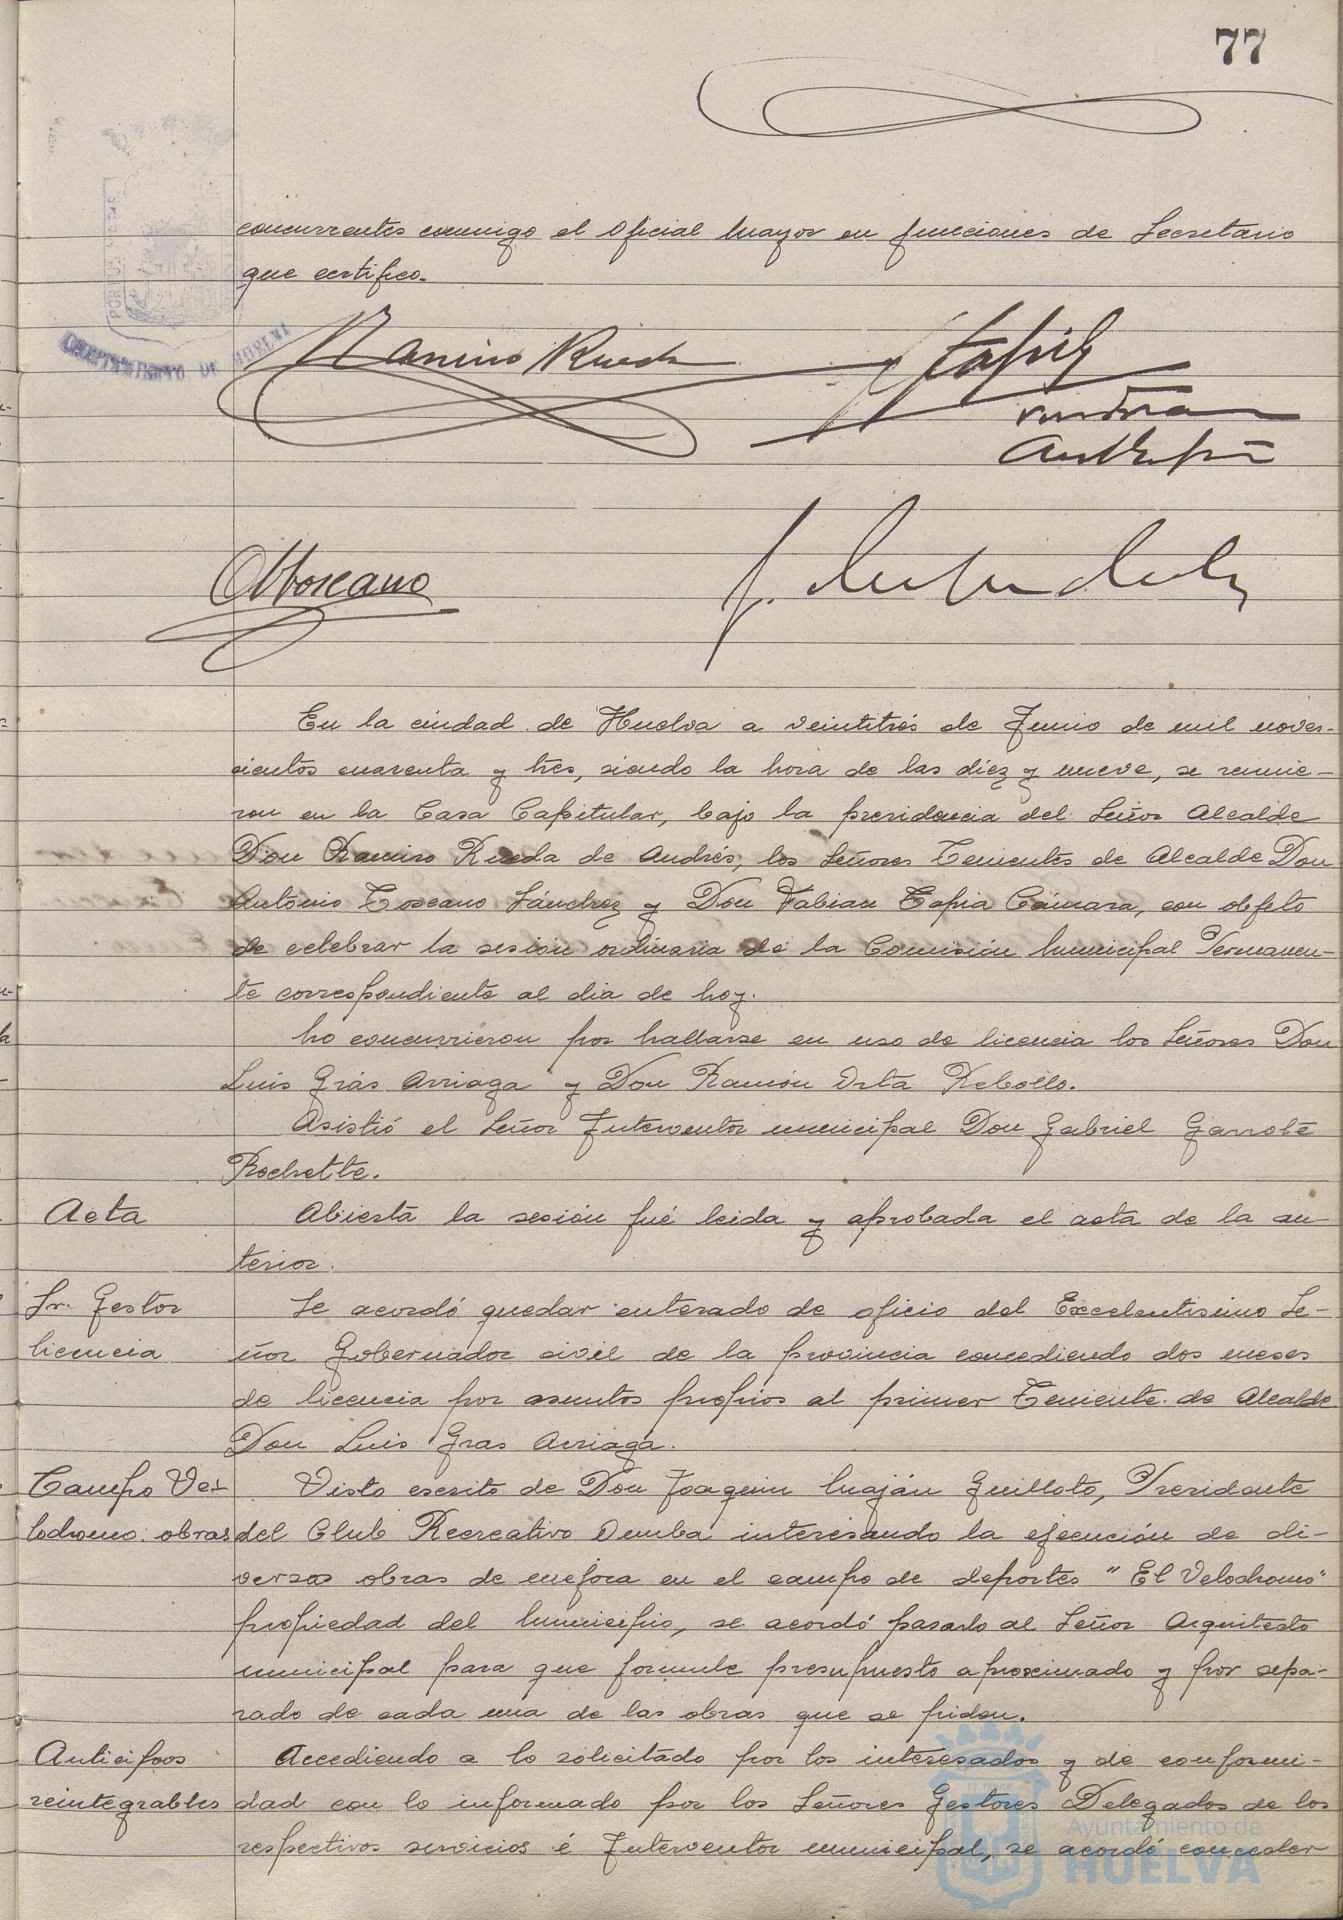 77
concurrentes conmigo el Oficial Mayor en funciones de Secretario
que certifico.
Ramiro Rueda
F Tapia
AToscano
En la ciudad de Huelva a veintitrés de Junio de mil nover-
cientos cuarenta y tres, siendo la hora de las diez y nueve, se reunie-
ron en la Casa Capitular, bajo la presidencia del Señor Alcalde
Don Ramiro Rueda de Andrés, los Señores Tenientes de Alcalde Don
Antonio Toscano Sánchez y Don Fabian Tapia Cámara, con objeto
de celebrar la sesión ordinaria de la Comisión Municipal Permanen-
te correspondiente al dia de hoy.
No concurrieron por hallarse en uso de licencia los Señores Don
Luis Grás Arriaga y Don Ramón Orta Rebollo.
Asistió el Señor Interventor municipal Don Gabriel Garrote
Rochette.
Acta
Abierta la sesión fué leida y aprobada el acta de la an-
terior.
Sr. Gestor
licencia
Se acordó quedar enterado de oficio del Excelentisimo Se-
ñor Gobernador civil de la provincia concediendo dos meses
de licencia por asuntos propios al primer Teniente de Alcalde
Don Luis Gras Arriaga.
Campo Ve-
lodromo: obras
Visto escrito de Don Joaquin Muján Guilloto, Presidente
del Club Recreativo Onuba interesando la ejecución de di-
versas obras de mejora en el campo de deportes "El Velodromo"
propiedad del Municipio, se acordó pasarlo al Señor Arquitecto
municipal para que formule presupuesto aproximado y por sepa-
rado de cada una de las obras que se piden.
Anticipos
reintegrables
Accediendo a lo solicitado por los interesados y de conformi-
dad con lo informado por los Señores Gestores Delegados de los
respectivos servicios é Interventor municipal, se acordó conceder
Ayuntamiento de
HUELVA